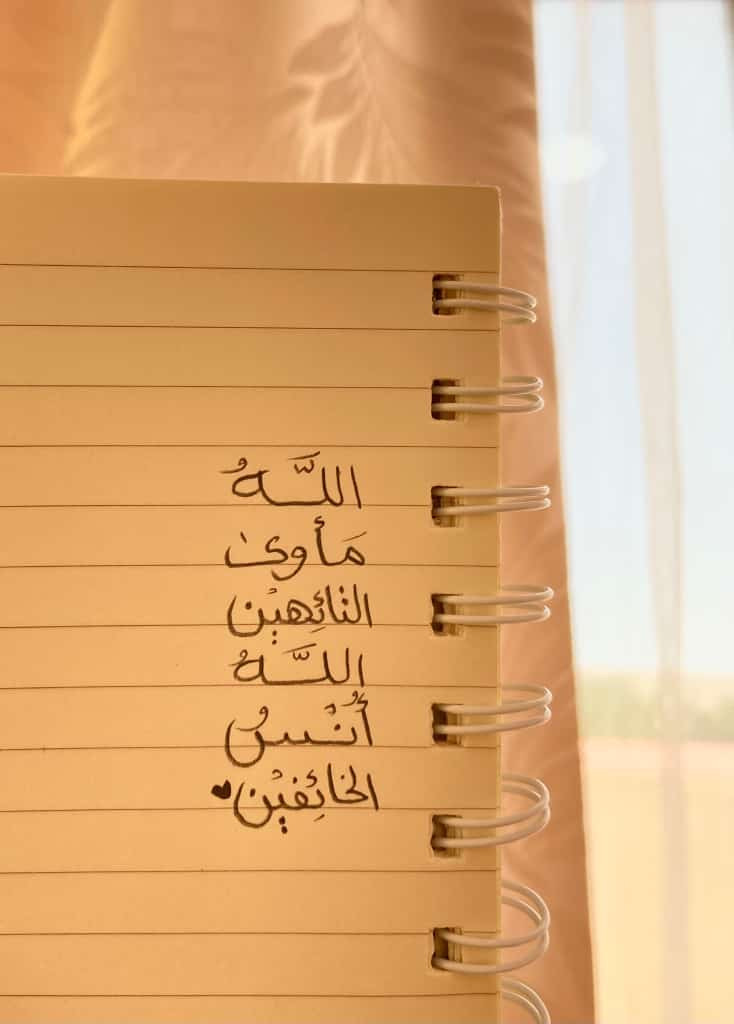 اللَّـهُ
مَأوىٰ
التائِهيْن
اللَّـهُ
أُنْسُ
الخائِفيْن